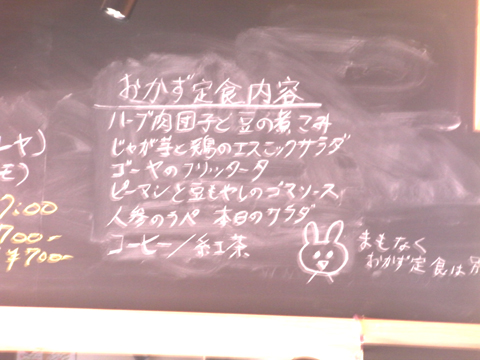 おかず定食内容
ハーブ肉団子と豆の煮こみ
じゃが芋と鶏のエスニックサラダ
ゴーヤのフリッタータ
ピーマンと豆もやしのゴマソース
人参のラペ 本日のサラダ
コーヒー/紅茶
まもなく
おかず定食は
ヤ)
モ)
7:00
700-
¥700-